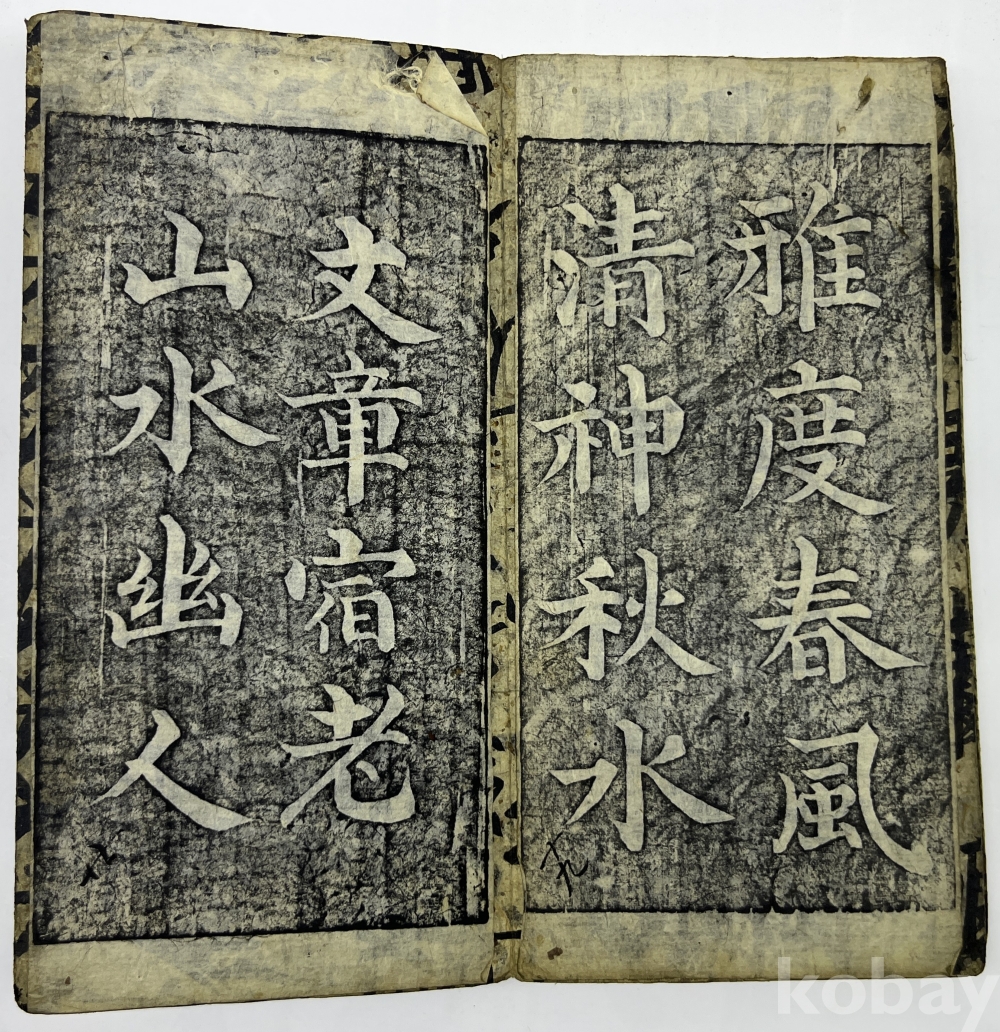 雅度春風
清神秋水
文章宿老
山水幽人
kobay